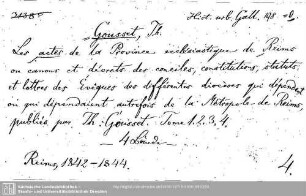 Hist. urb. Gall. 128
Gousset, Th.
Les actes de la Province ecclésiastique de Reims
ou canons et décrets des conciles, constitutions, statuts
et lettres des Évêques des différents diocèses qui dépendent
ou qui dépendaient autrefois de la Métropole de Reims,
publiés par Th: Gousset. Tome 1. 2. 3. 4.
4 Bände
Reims, 1842-1844.
4.